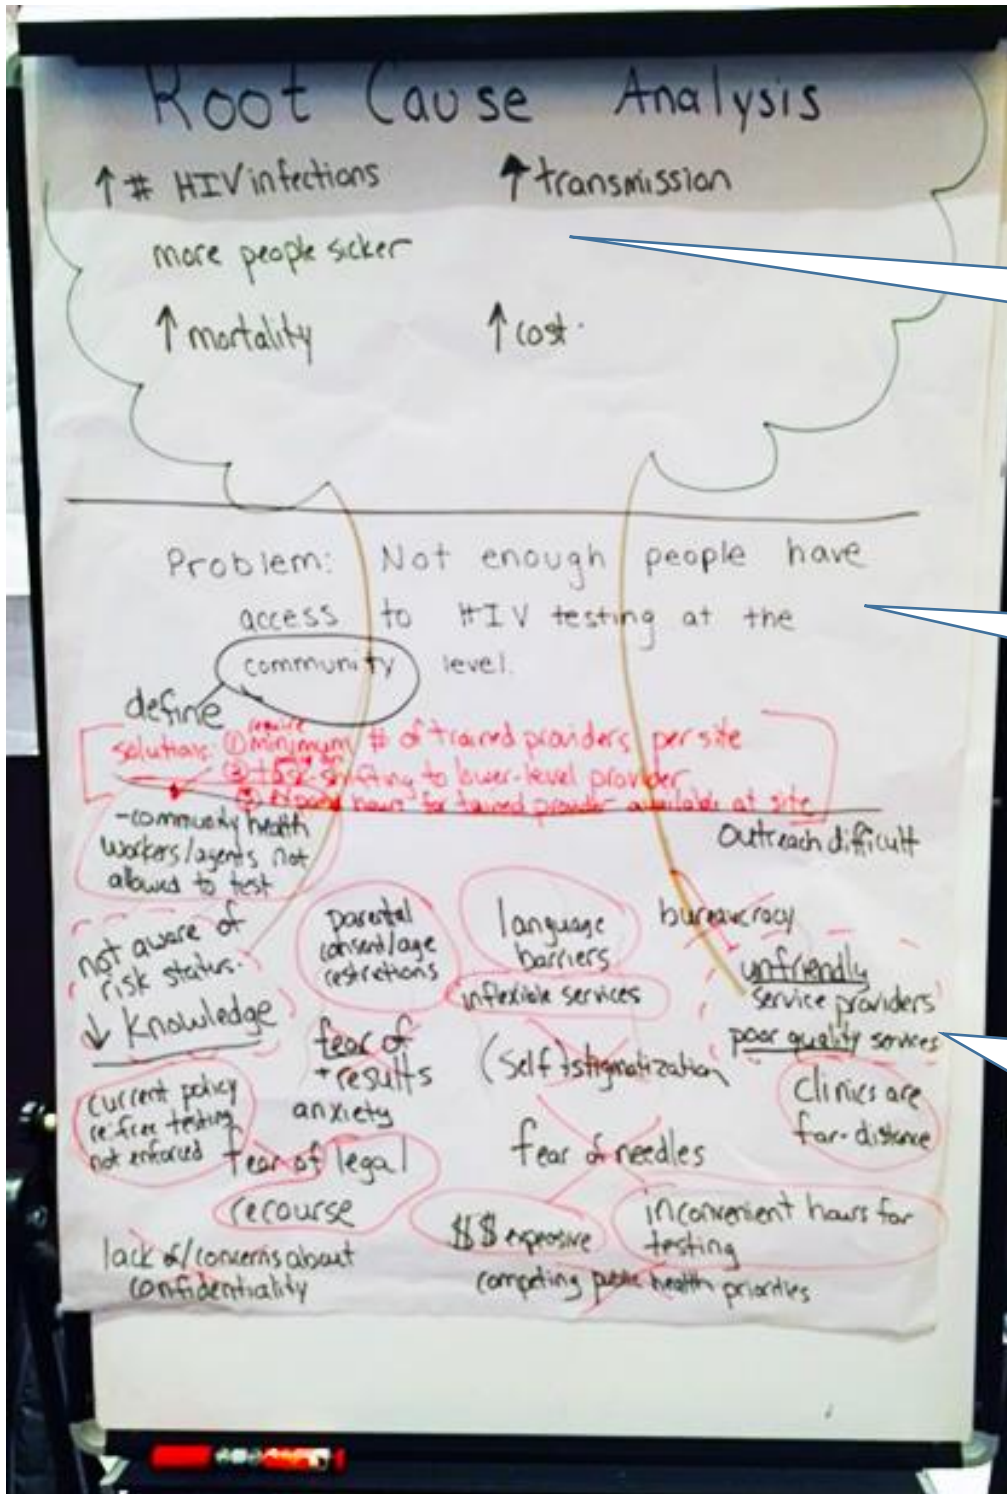 Root Cause Analysis
↑ # HIV infections
↑ transmission
more people sicker
↑ mortality
↑ cost.
Problem: Not enough people have
access to HIV testing at the
community level.
define
require
solutions: ① minimum # of trained providers per site
② task-shifting to lower-level provider
③ expand hours for trained provider available at site
-community health
workers/agents not
allowed to test
Outreach difficult
not aware of
risk status.
↓ knowledge
parental
consent/age
restrictions
language
barriers
inflexible services
bureaucracy
unfriendly
service providers
poor quality services
fear of
+ results
anxiety
(Self) stigmatization
clinics are
far-distance
current policy
re: free testing
not enforced
fear of legal
recourse
fear of needles
$$ expensive
inconvenient hours for
testing
lack of/concerns about
confidentiality
competing public health priorities